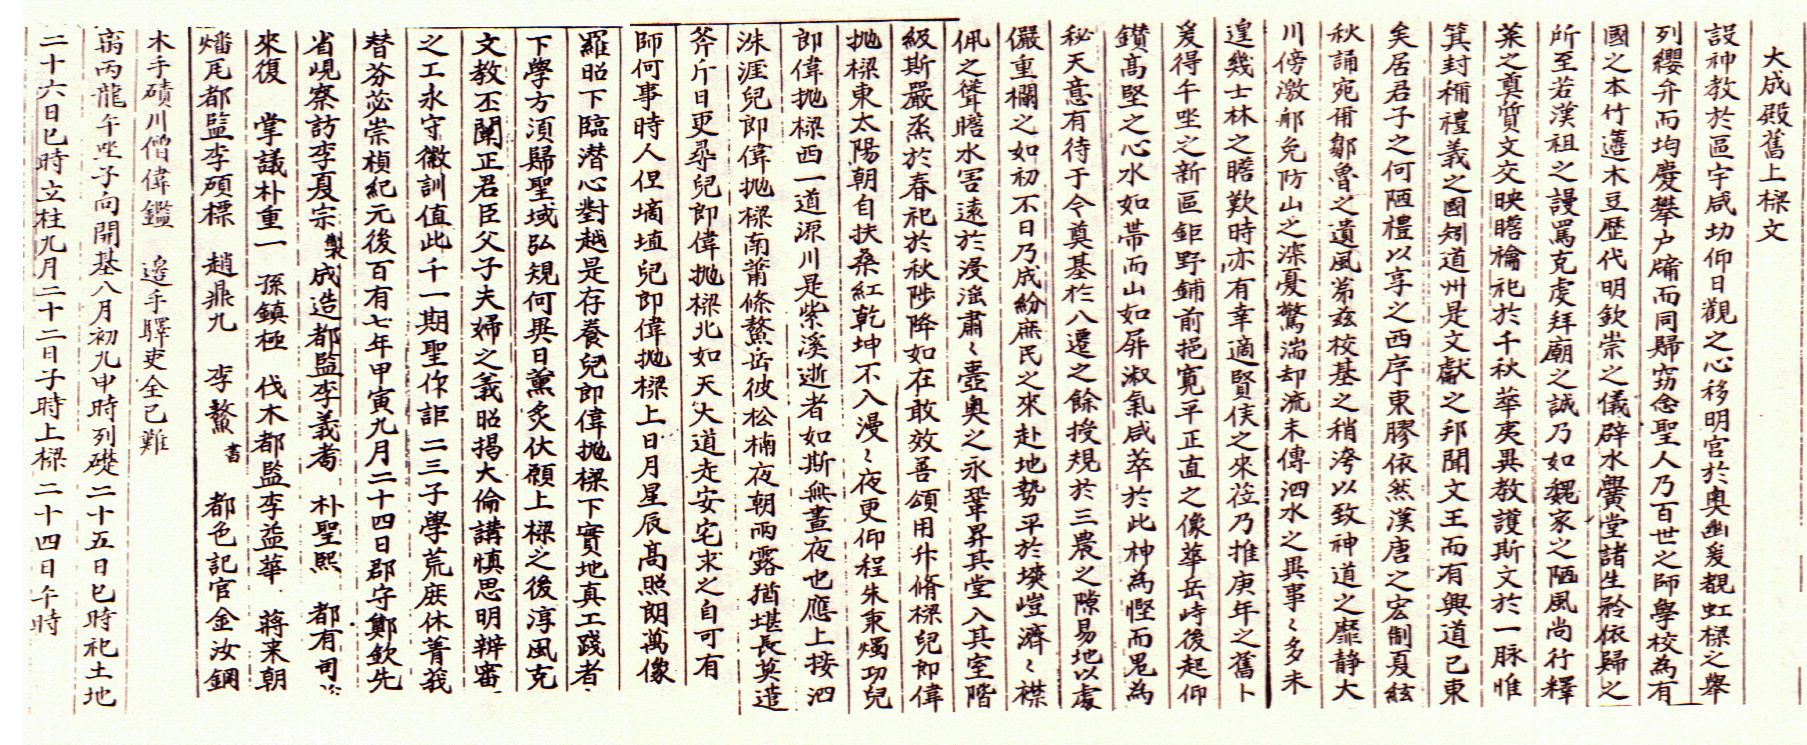 大成殿舊上樑文
設神教於區宇咸切仰日觀之心移明宮於奧幽爰覩虹樑之舉
列纓弁而均慶攀户牖而同歸窃念聖人乃百世之師學校為有
國之本竹籩木豆歷代明欽崇之儀辟水黌堂諸生於依歸之
所至若漢祖之謾罵克虔拜廟之誠乃如魏家之陋風尚行釋
菜之奠質文交映瞻禴祀於千秋華夷異教護斯文於一脉惟
箕封稱禮義之國矧道州是文獻之邦聞文王而有興道已東
矣居君子之何陋禮以享之西序東膠依然漢唐之宏制夏絃
秋誦宛甭鄒魯之遺風第玆校基之稍洿以致神道之靡静大
川傍激郁免防山之深憂驚湍却流未傳泗水之異事〻多未
遑幾士林之瞻歎時亦有幸適賢侯之來莅乃推庚年之舊卜
爰得午坐之新區鉅野鋪前挹寛平正直之像華岳峙後起仰
鑚高堅之心水如帶而山如屏淑氣咸萃於此神為慳而鬼為
秘天意有待于今奠基於八遷之餘授規於三農之隙易地以處
儼重欄之如初不日乃成紛庶民之來赴地勢平於墺嵦濟〻襟
佩之聳瞻水害遠於浸滛肅〻壼奥之永鞏昇其堂入其室階
級斯嚴烝於春祀於秋陟降如在敢效善頌用升脩樑兒郎偉
抛樑東太陽朝自扶桑紅乾坤不入漫〻夜更仰程朱秉燭功兒
郎偉抛樑西一道源川是紫溪逝者如斯無晝夜也應上接泗
洙涯兒郎偉抛樑南莆條鰲岳彼松楠夜朝雨露猶堪長莫遣
斧斤日更尋兒郎偉抛樑北如天大道走安宅求之自可有
師何事時人但墑埴兒郎偉抛樑上日月星辰高照朗萬像
羅昭下臨潜心對越是存養兒郎偉抛樑下實地真工踐者
下學方湏歸聖域弘規何異日薰炙伏願上樑之後淳風克
文教丕闡正君臣父子夫婦之義昭揭大倫講慎思明辨審
之工永守徽訓值此千一期聖作詎二三子學荒庶休菁莪
替芬苾崇禎紀元後百有七年甲寅九月二十四日郡守鄭欽先
省峴察訪李夏宗製成造都監李義耉　朴聖熙　都有司
來復　掌議朴重一　孫鎮極　伐木都監李益華　蔣来朝
燔瓦都監李碩標　趙鼎九　李鰲書　都色記官金汝鋼
木手磧川僧偉鑑　邉手驛吏全已難
离丙龍午坐子向開基八月初九申時列礎二十五日巳時祀土地
二十六日巳時立柱九月二十二日子時上樑二十四日午時